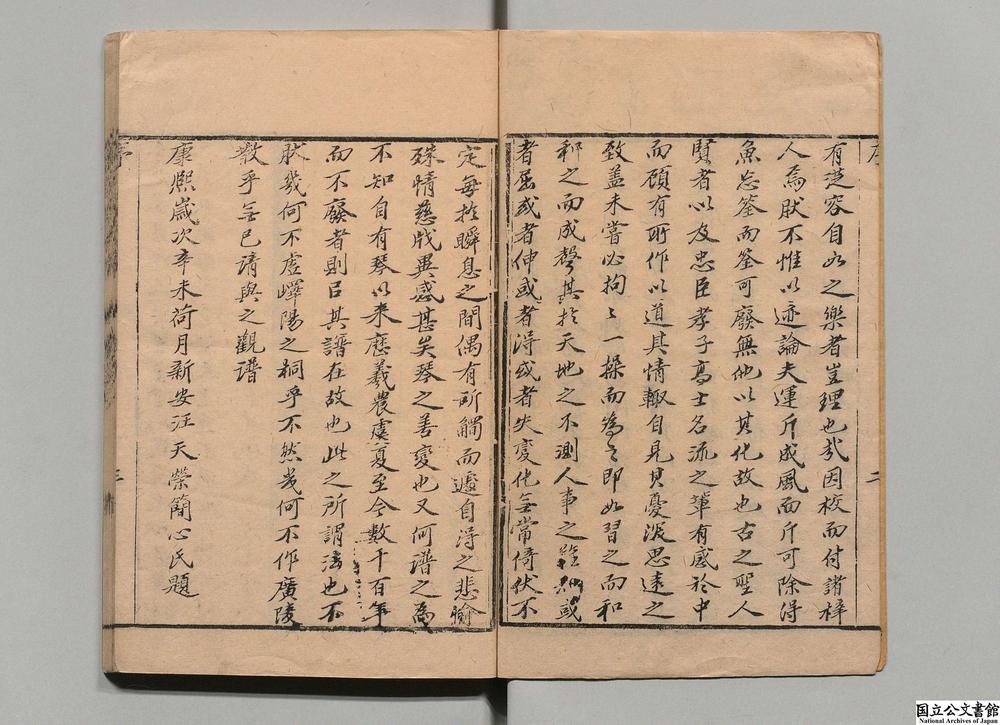 序
二
有從容自如之樂者豈理也哉因校而付諸梓
人焉肰不惟以迹論夫運斤成風而斤可除得
魚忘筌而筌可廢無他以其化故也古之聖人
賢者以及忠臣孝子高士名流之輩有感於中
而頎有所作以道其情輙自見其憂深思遠之
致盖未嘗必拘〻一操而為之即如習之而和
和之而成聲其扵天地之不測人事之難知或
者屈或者伸或者得或者失變化無常倚伏不
定每扵瞬息之間偶有所觸而遽自得之悲愉
殊情慈戕異感甚矣琴之善變也又何譜之為
不知自有琴以来歷羲農虞夏至今數千百年
而不廢者則曰其譜在故也此之所謂法也不
肰幾何不虛嶧陽之桐乎不然幾何不作廣陵
散乎無已請與之觀譜
康熙歲次辛未荷月新安汪天榮簡心氏題
序
三
国立公文書館
National Archives of Japan